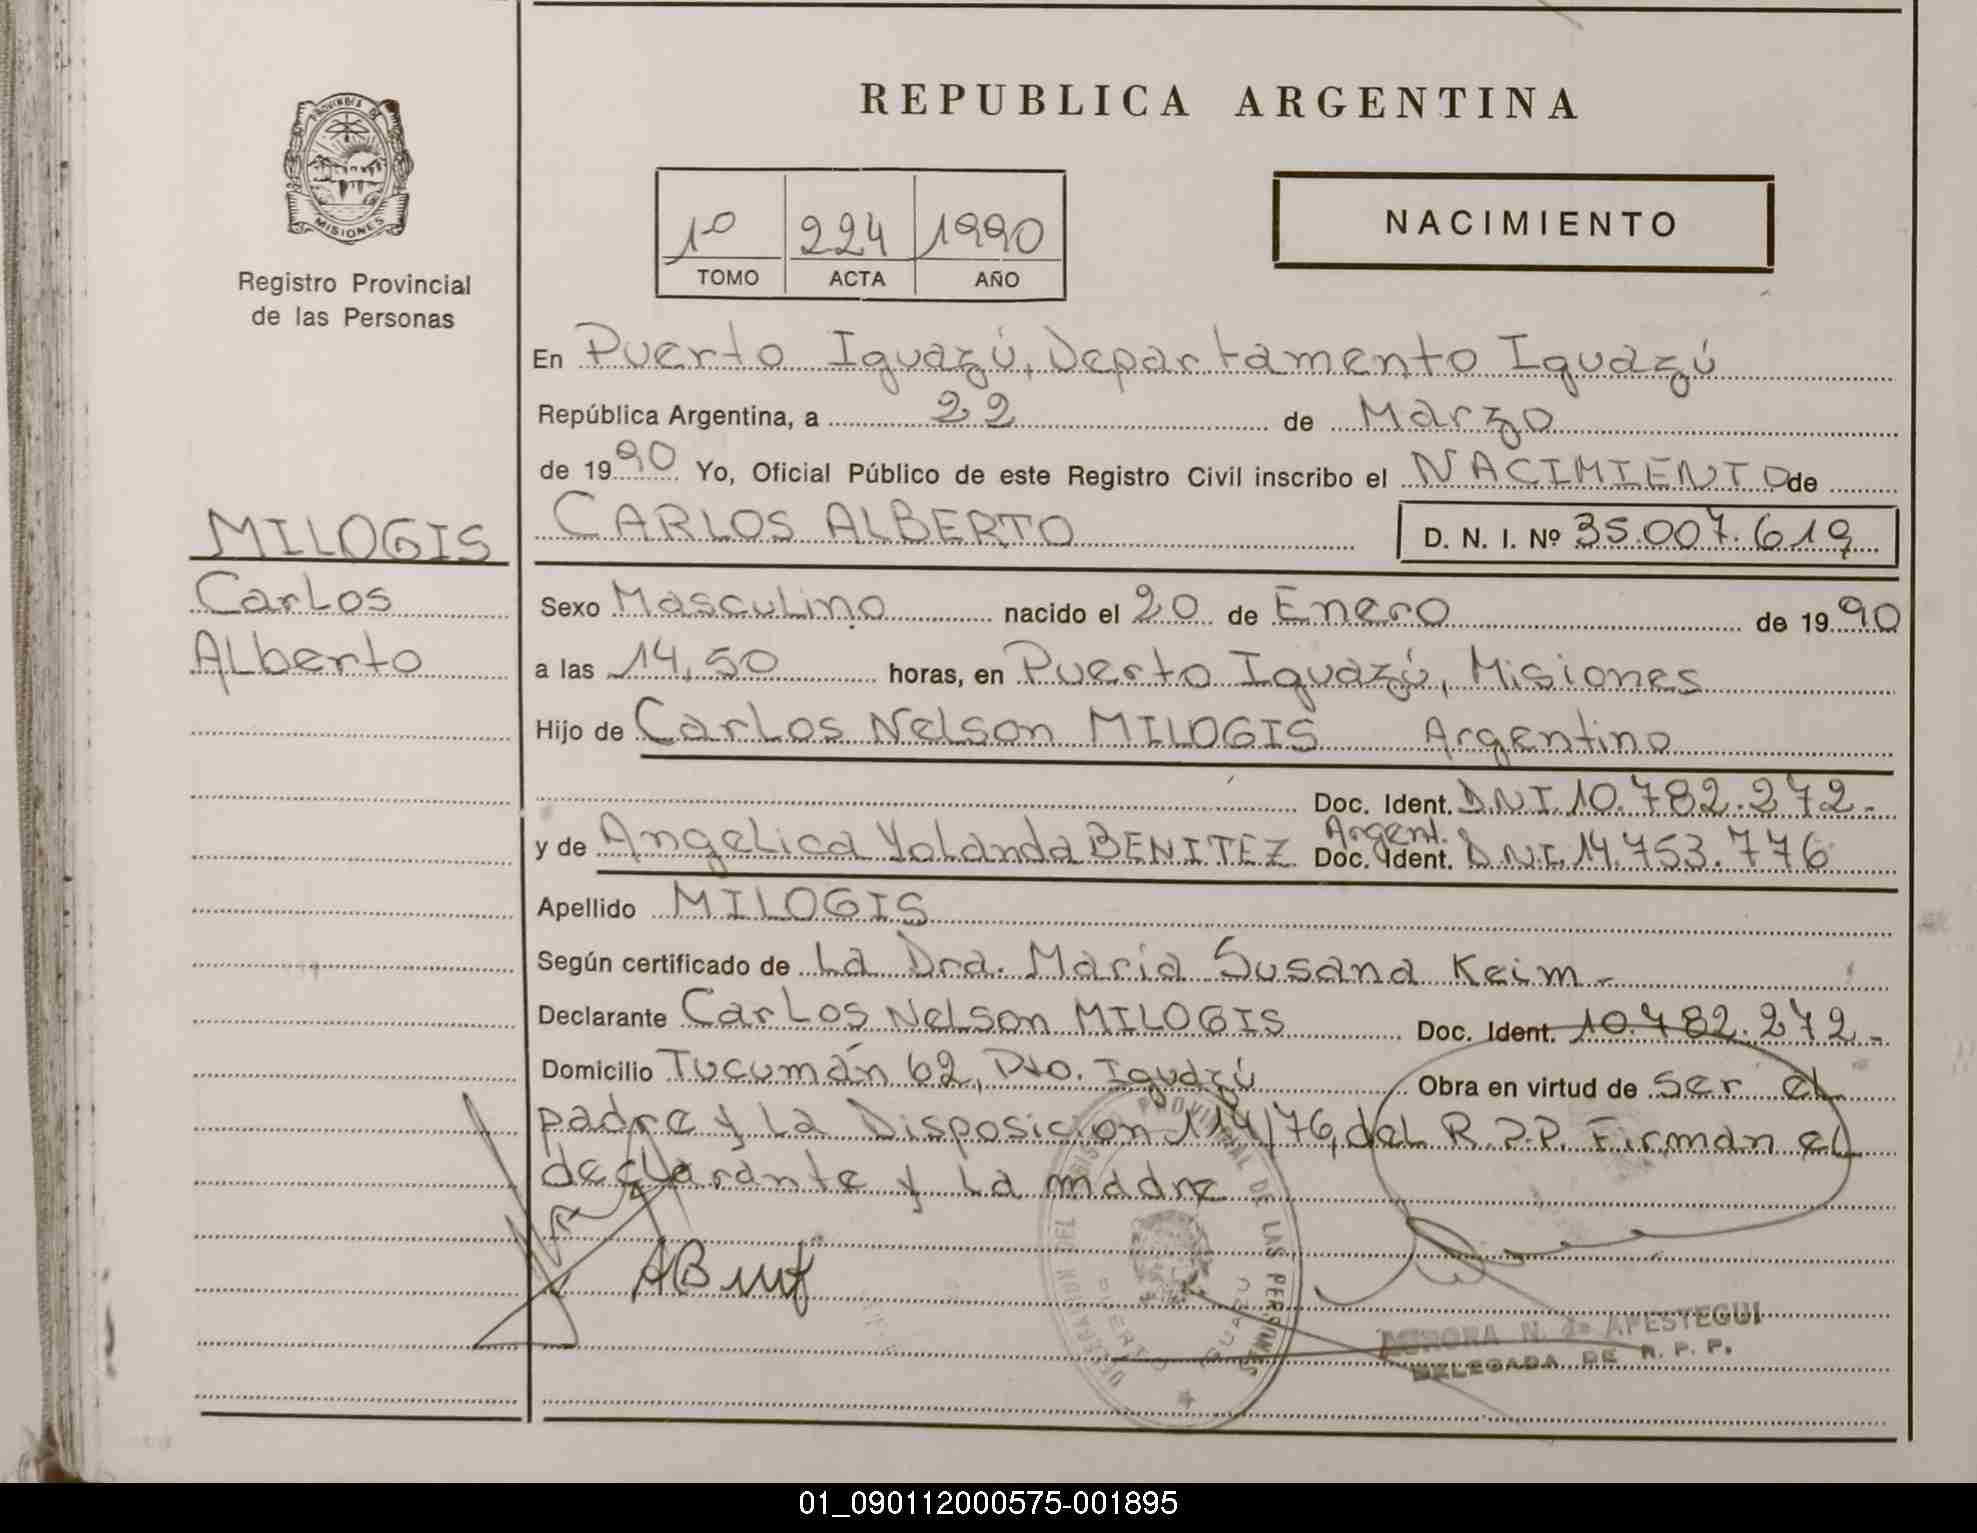 REPUBLICA ARGENTINA
PROVINCIA DE
MISIONES
Registro Provincial
de las Personas
1º 224 1990
TOMO ACTA AÑO
NACIMIENTO
En Puerto Iguazú, Departamento Iguazú
República Argentina, a 22 de Marzo
de 1990 Yo, Oficial Público de este Registro Civil inscribo el NACIMIENTO de
MILOGIS
Carlos
Alberto
CARLOS ALBERTO D. N. I. Nº 35.007.619
Sexo Masculino nacido el 20 de Enero de 1990
a las 14,50 horas, en Puerto Iguazú, Misiones
Hijo de Carlos Nelson MILOGIS Argentino
Doc. Ident. DNI.10.782.272.-
y de Angelica Yolanda BENITEZ Argent. Doc. Ident. DNI.14.753.776
Apellido MILOGIS
Según certificado de La Dra. Maria Susana Keim -
Declarante Carlos Nelson MILOGIS Doc. Ident. 10.782.272.-
Domicilio Tucumán 62, Pto. Iguazú Obra en virtud de ser el
padre y la Disposicion 114/76, del R.P.P. Firman el
declarante y la madre
PROVINCIAL DE LAS PERSONAS
N. de APESTEGUI
DELEGADA DE R. P. P.
01_090112000575-001895